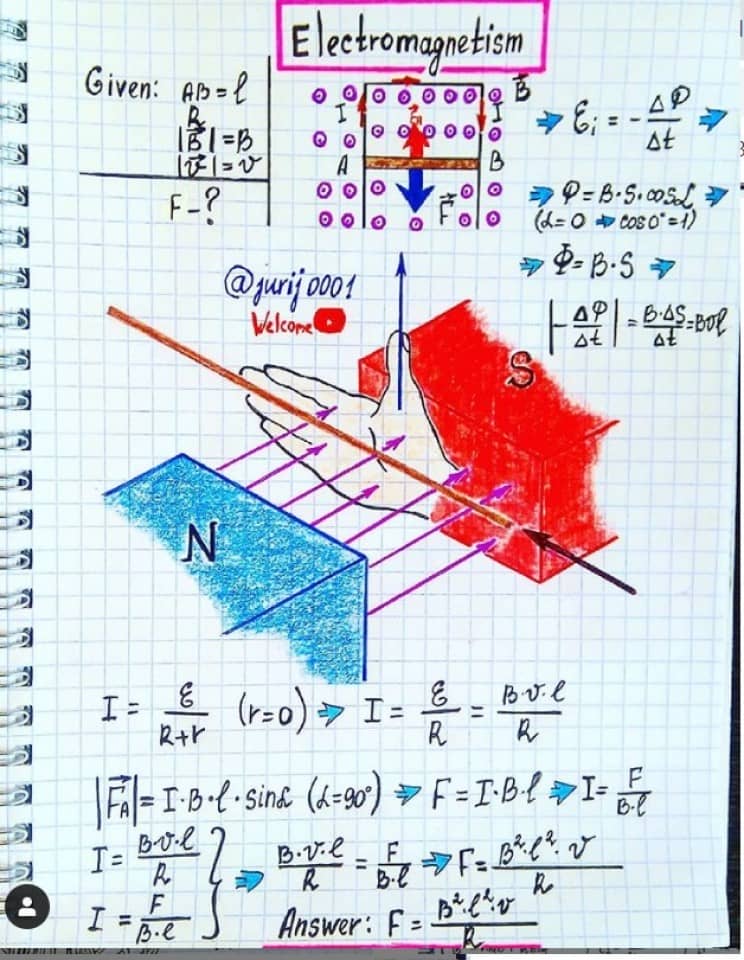 Electromagnetism
Given: AB = l
R
|B⃗| = B
|v⃗| = v
F - ?
I
I
B⃗
A
B
F⃗
⇒ Ɛi = - ΔΦ/Δt ⇒
⇒ Φ = B·S·cosα ⇒
(α = 0 ⇒ cos0° = 1)
⇒ Φ = B·S ⇒
|- ΔΦ/Δt| = B·ΔS/Δt = Bvl
@jurij0001
Welcome
S
N
I = Ɛ/R+r (r=0) ⇒ I = Ɛ/R = B·v·l/R
|F⃗A| = I·B·l·sinα (α=90°) ⇒ F = I·B·l ⇒ I = F/B·l
I = B·v·l/R
I = F/B·l
} ⇒ B·v·l/R = F/B·l ⇒ F = B²·l²·v/R
Answer: F = B²·l²·v/R